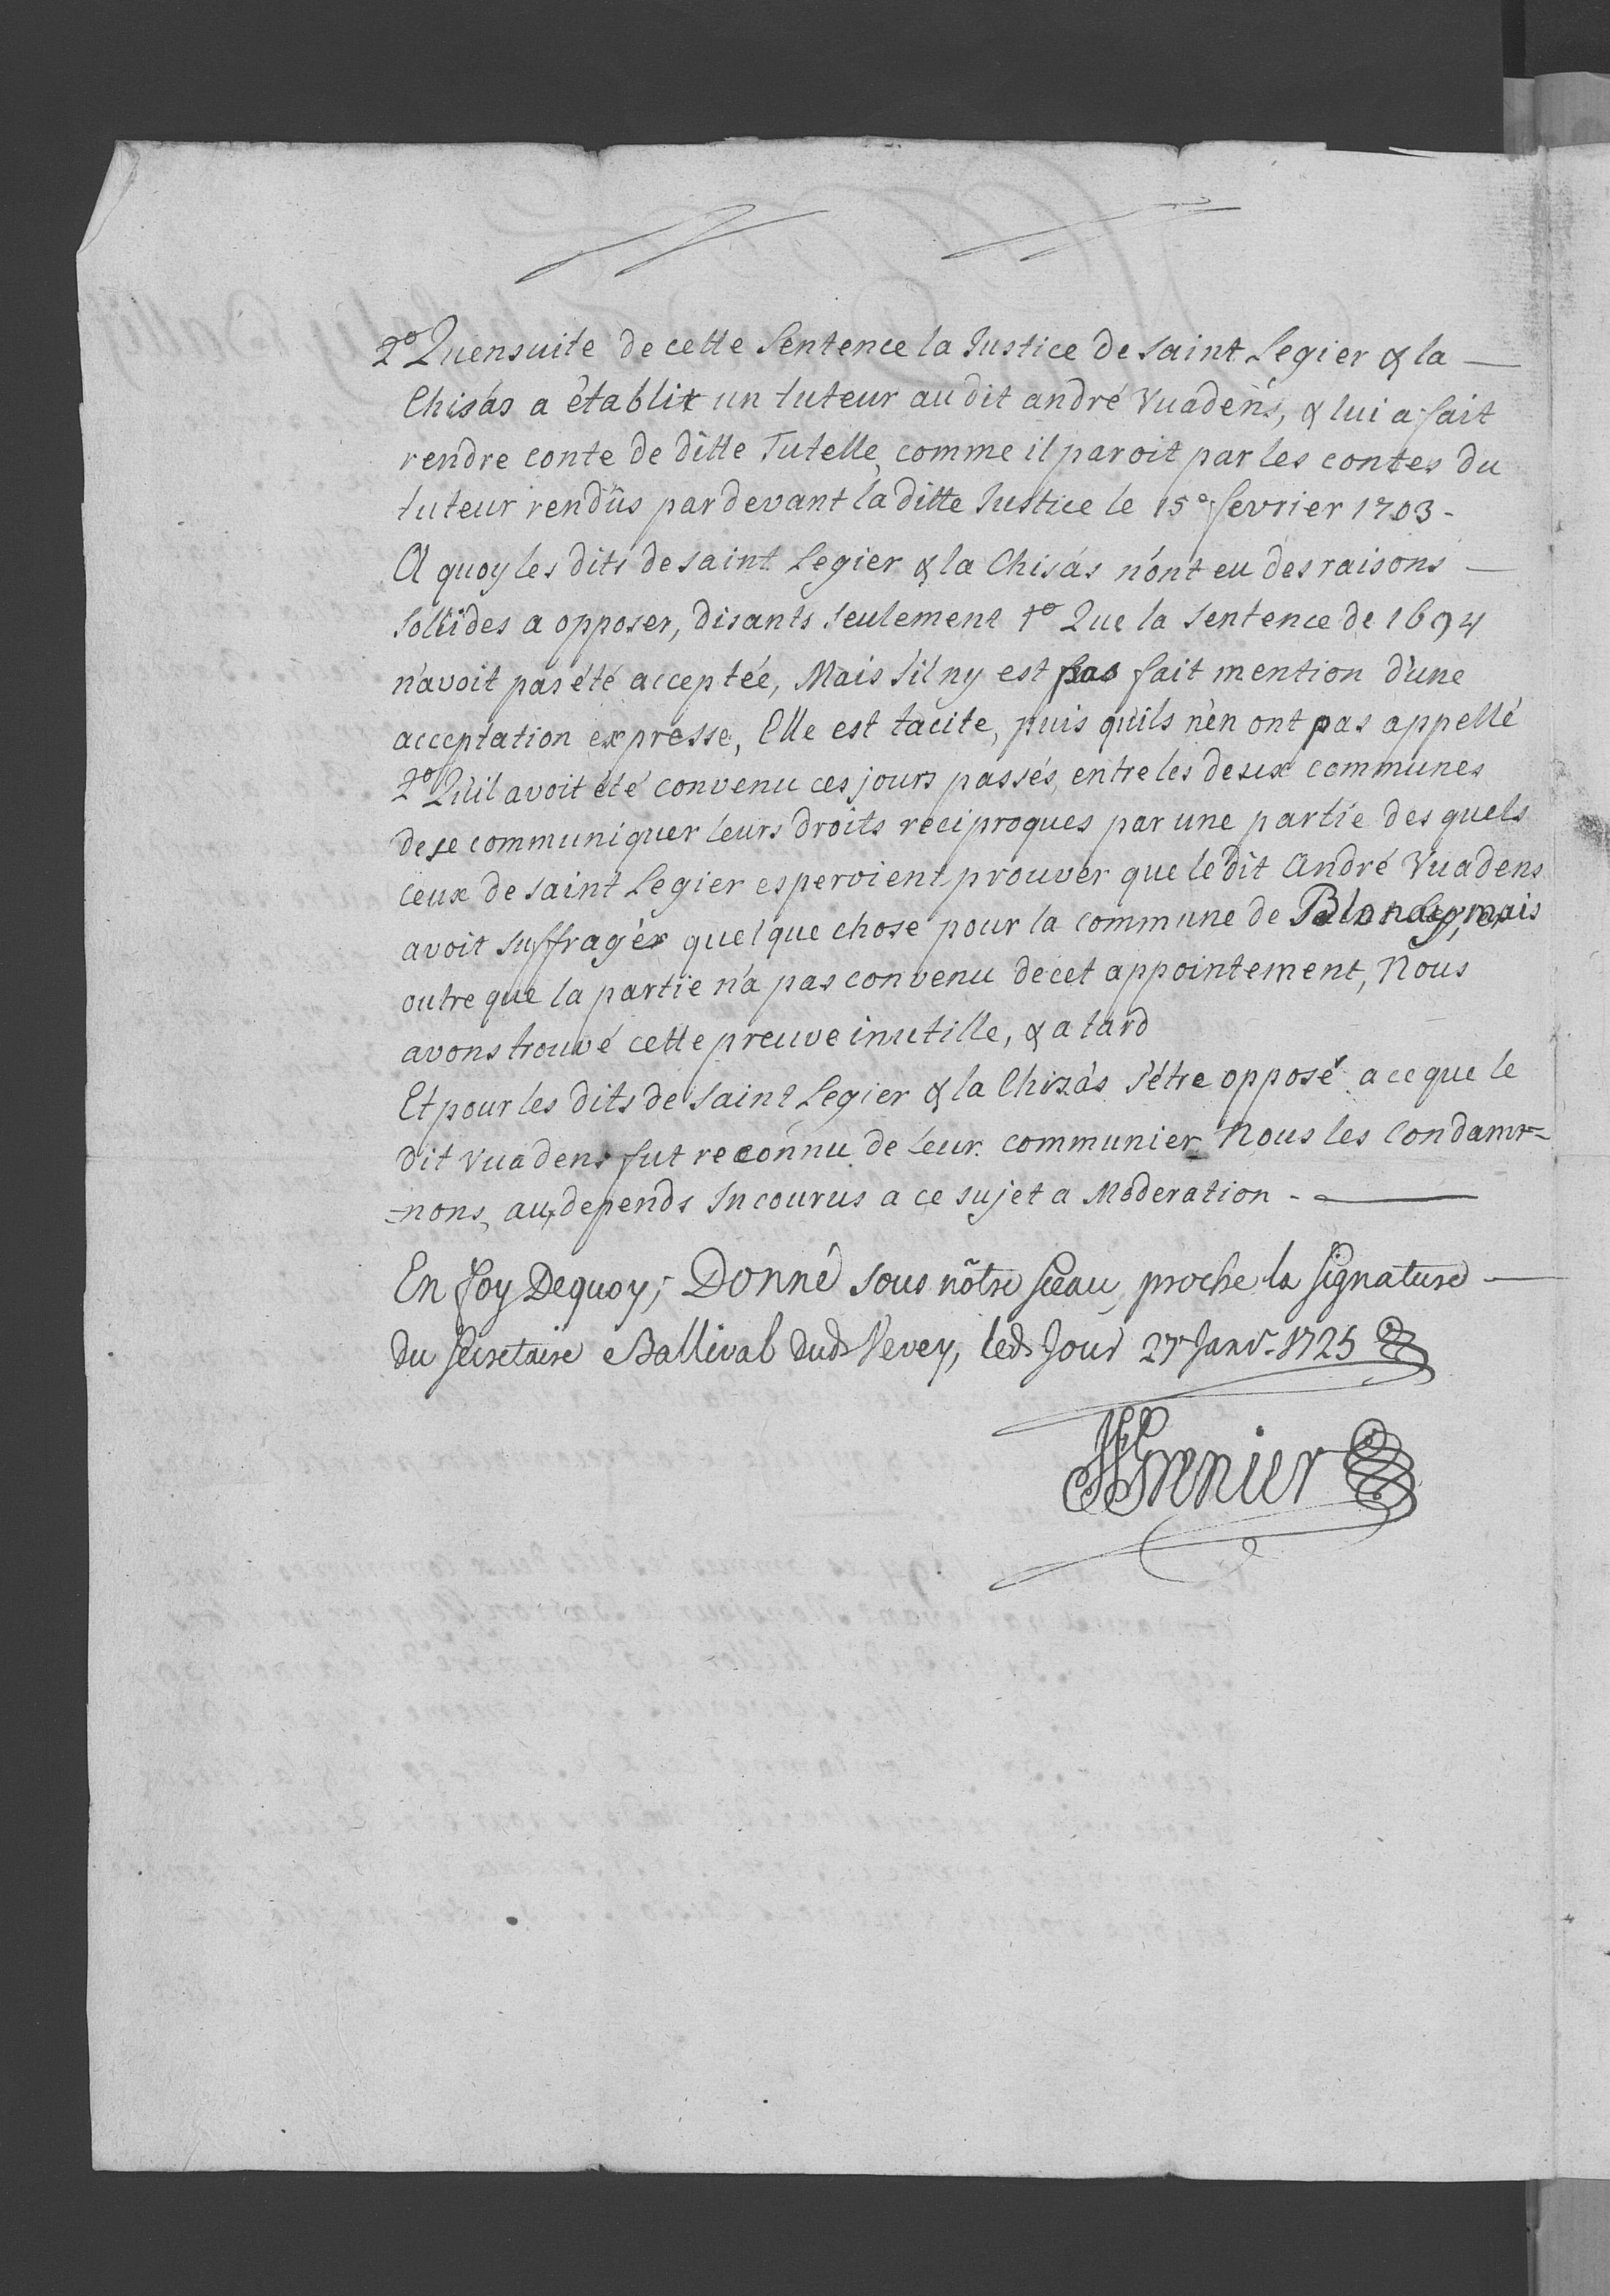 2º Quensuite de cette Sentence la Justice de saint Legier & la —
Chisás a établit un tuteur au dit andré Vuadens, & lui a fait
rendre conte de ditte Tutelle, comme il paroit par les contes du
tuteur rendüs par devant la ditte Justice le 15e fevrier 1703 -
A quoy les dits de saint Legier & la Chisás n'ont eu des raisons —
solides a opposer, disants seulement 1º Que la sentence de 1694
n'avoit pas été acceptée, Mais s'il ny est pas fait mention d'une
acceptation expresse, Elle est tacite, puis qu'ils n'en ont pas appellé
2º Qu'il avoit été convenu ces jours passés, entre les deux communes
de se communiquer leurs droits reciproques par une partie des quels
ceux de saint Legier esperoient prouver que le dit André Vuadens
avoit suffragér quelque chose pour la commune de Blonay, mais
outre que la partie n'a pas convenu de cet appointement, Nous
avons trouvé cette preuve inutille, & a tard
Et pour les dits de saint Legier & la Chizás s'étre opposé a ce que le
dit Vuadens fut reconnu de leur communier Nous les Condam=
=nons, aux depends Incourus a ce sujet a Moderation - —
En foy Dequoy, Donné sous nôtre sceau, proche la signature —
du secretaire Ballival dud. Vevey, led. Jour 27e Janvr. 1725
Grenier